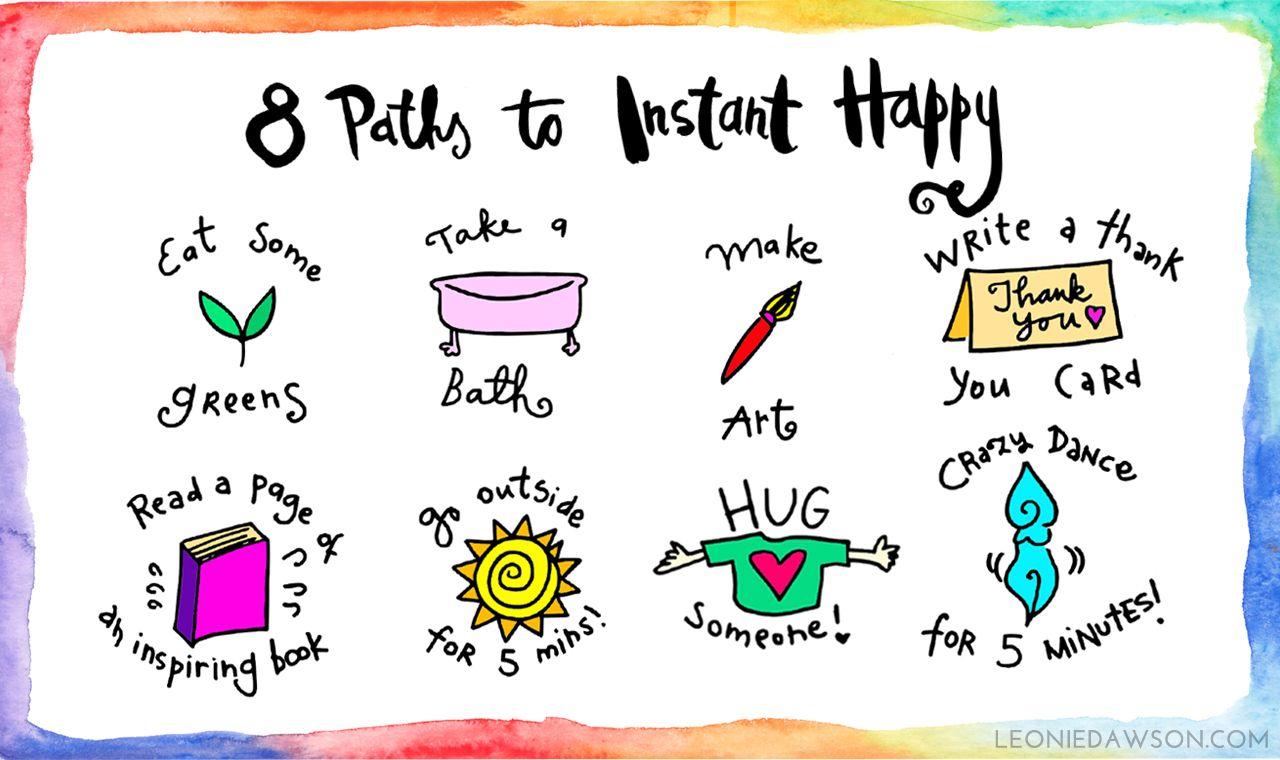 8 Paths to Instant Happy
Eat Some
greens
Take a
Bath
Make
Art
Write a thank
Thank
You
You Card
Read a page
of
an inspiring book
go outside
for 5 mins!
HUG
Someone!
Crazy Dance
for 5 Minutes!
LEONIEDAWSON.COM